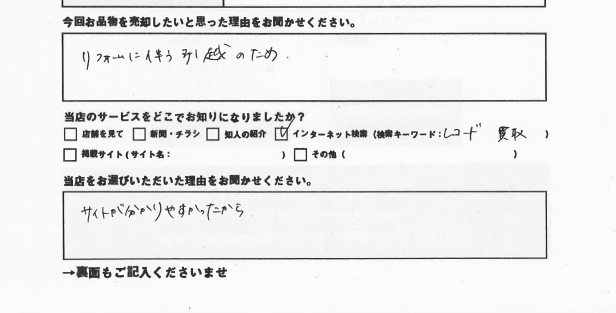 今回お品物を売却したいと思った理由をお聞かせください。
リフォームに伴う引越のため.
当店のサービスをどこでお知りになりましたか?
□ 店舗を見て □ 新聞・チラシ □ 知人の紹介 ☑ インターネット検索 (検索キーワード:レコード 買取 )
□ 掲載サイト(サイト名: ) □ その他( )
当店をお選びいただいた理由をお聞かせください。
サイトが分かりやすかったから
→裏面もご記入くださいませ